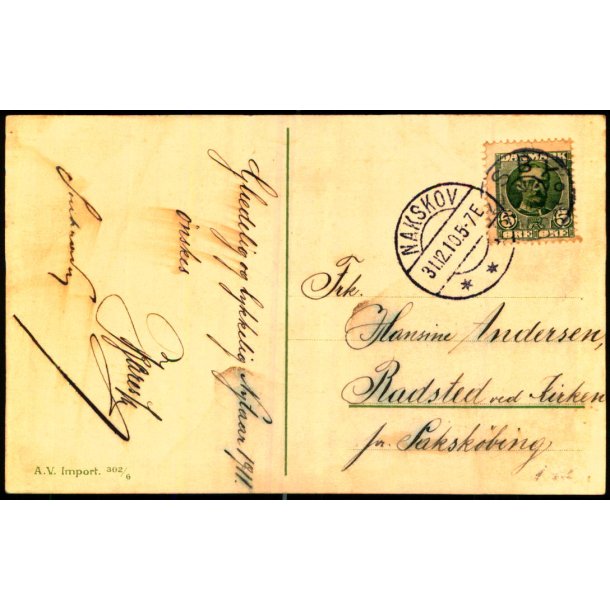 Glædelig og lykkelig Nytaar 1911.
ønskes
A.V. Import. 302/6
NAKSKOV
31.12.10.5-7E
DANMARK
5 5
ØRE ØRE
Frk.
Hansine Andersen,
Radsted ved Kirken
pr. Sakskøbing